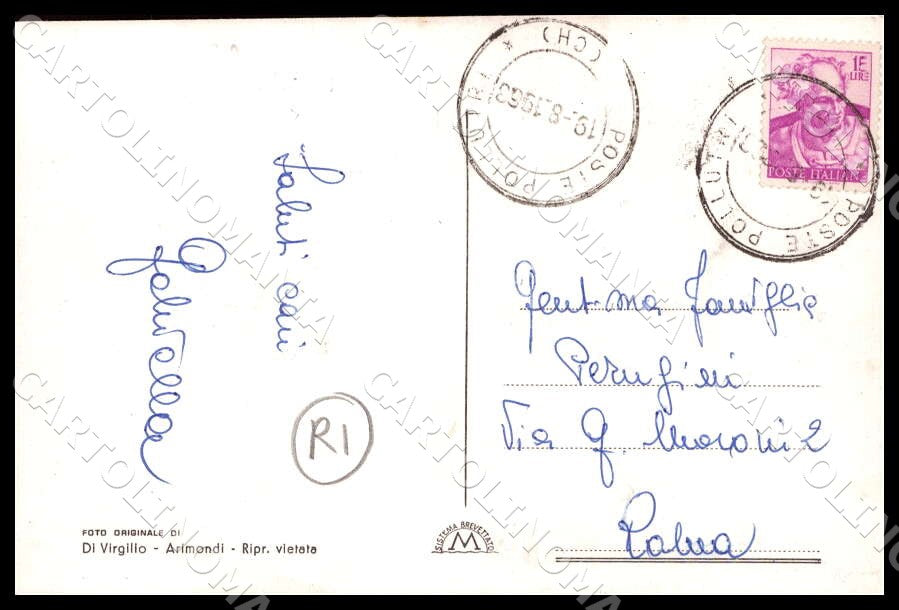 Saluti cari
(CH) *
19-8.1963
POSTE POLLUTRI
15 LIRE
POSTE ITALIANE
POSTE POLLUTRI
Gent.ma Famiglia
Perugini
Via G.
2
R1
FOTO ORIGINALE DI
Di Virgilio - Arimondi - Ripr. vietata
SISTEMA BREVETTATO
M
CARTOLINOMANIA